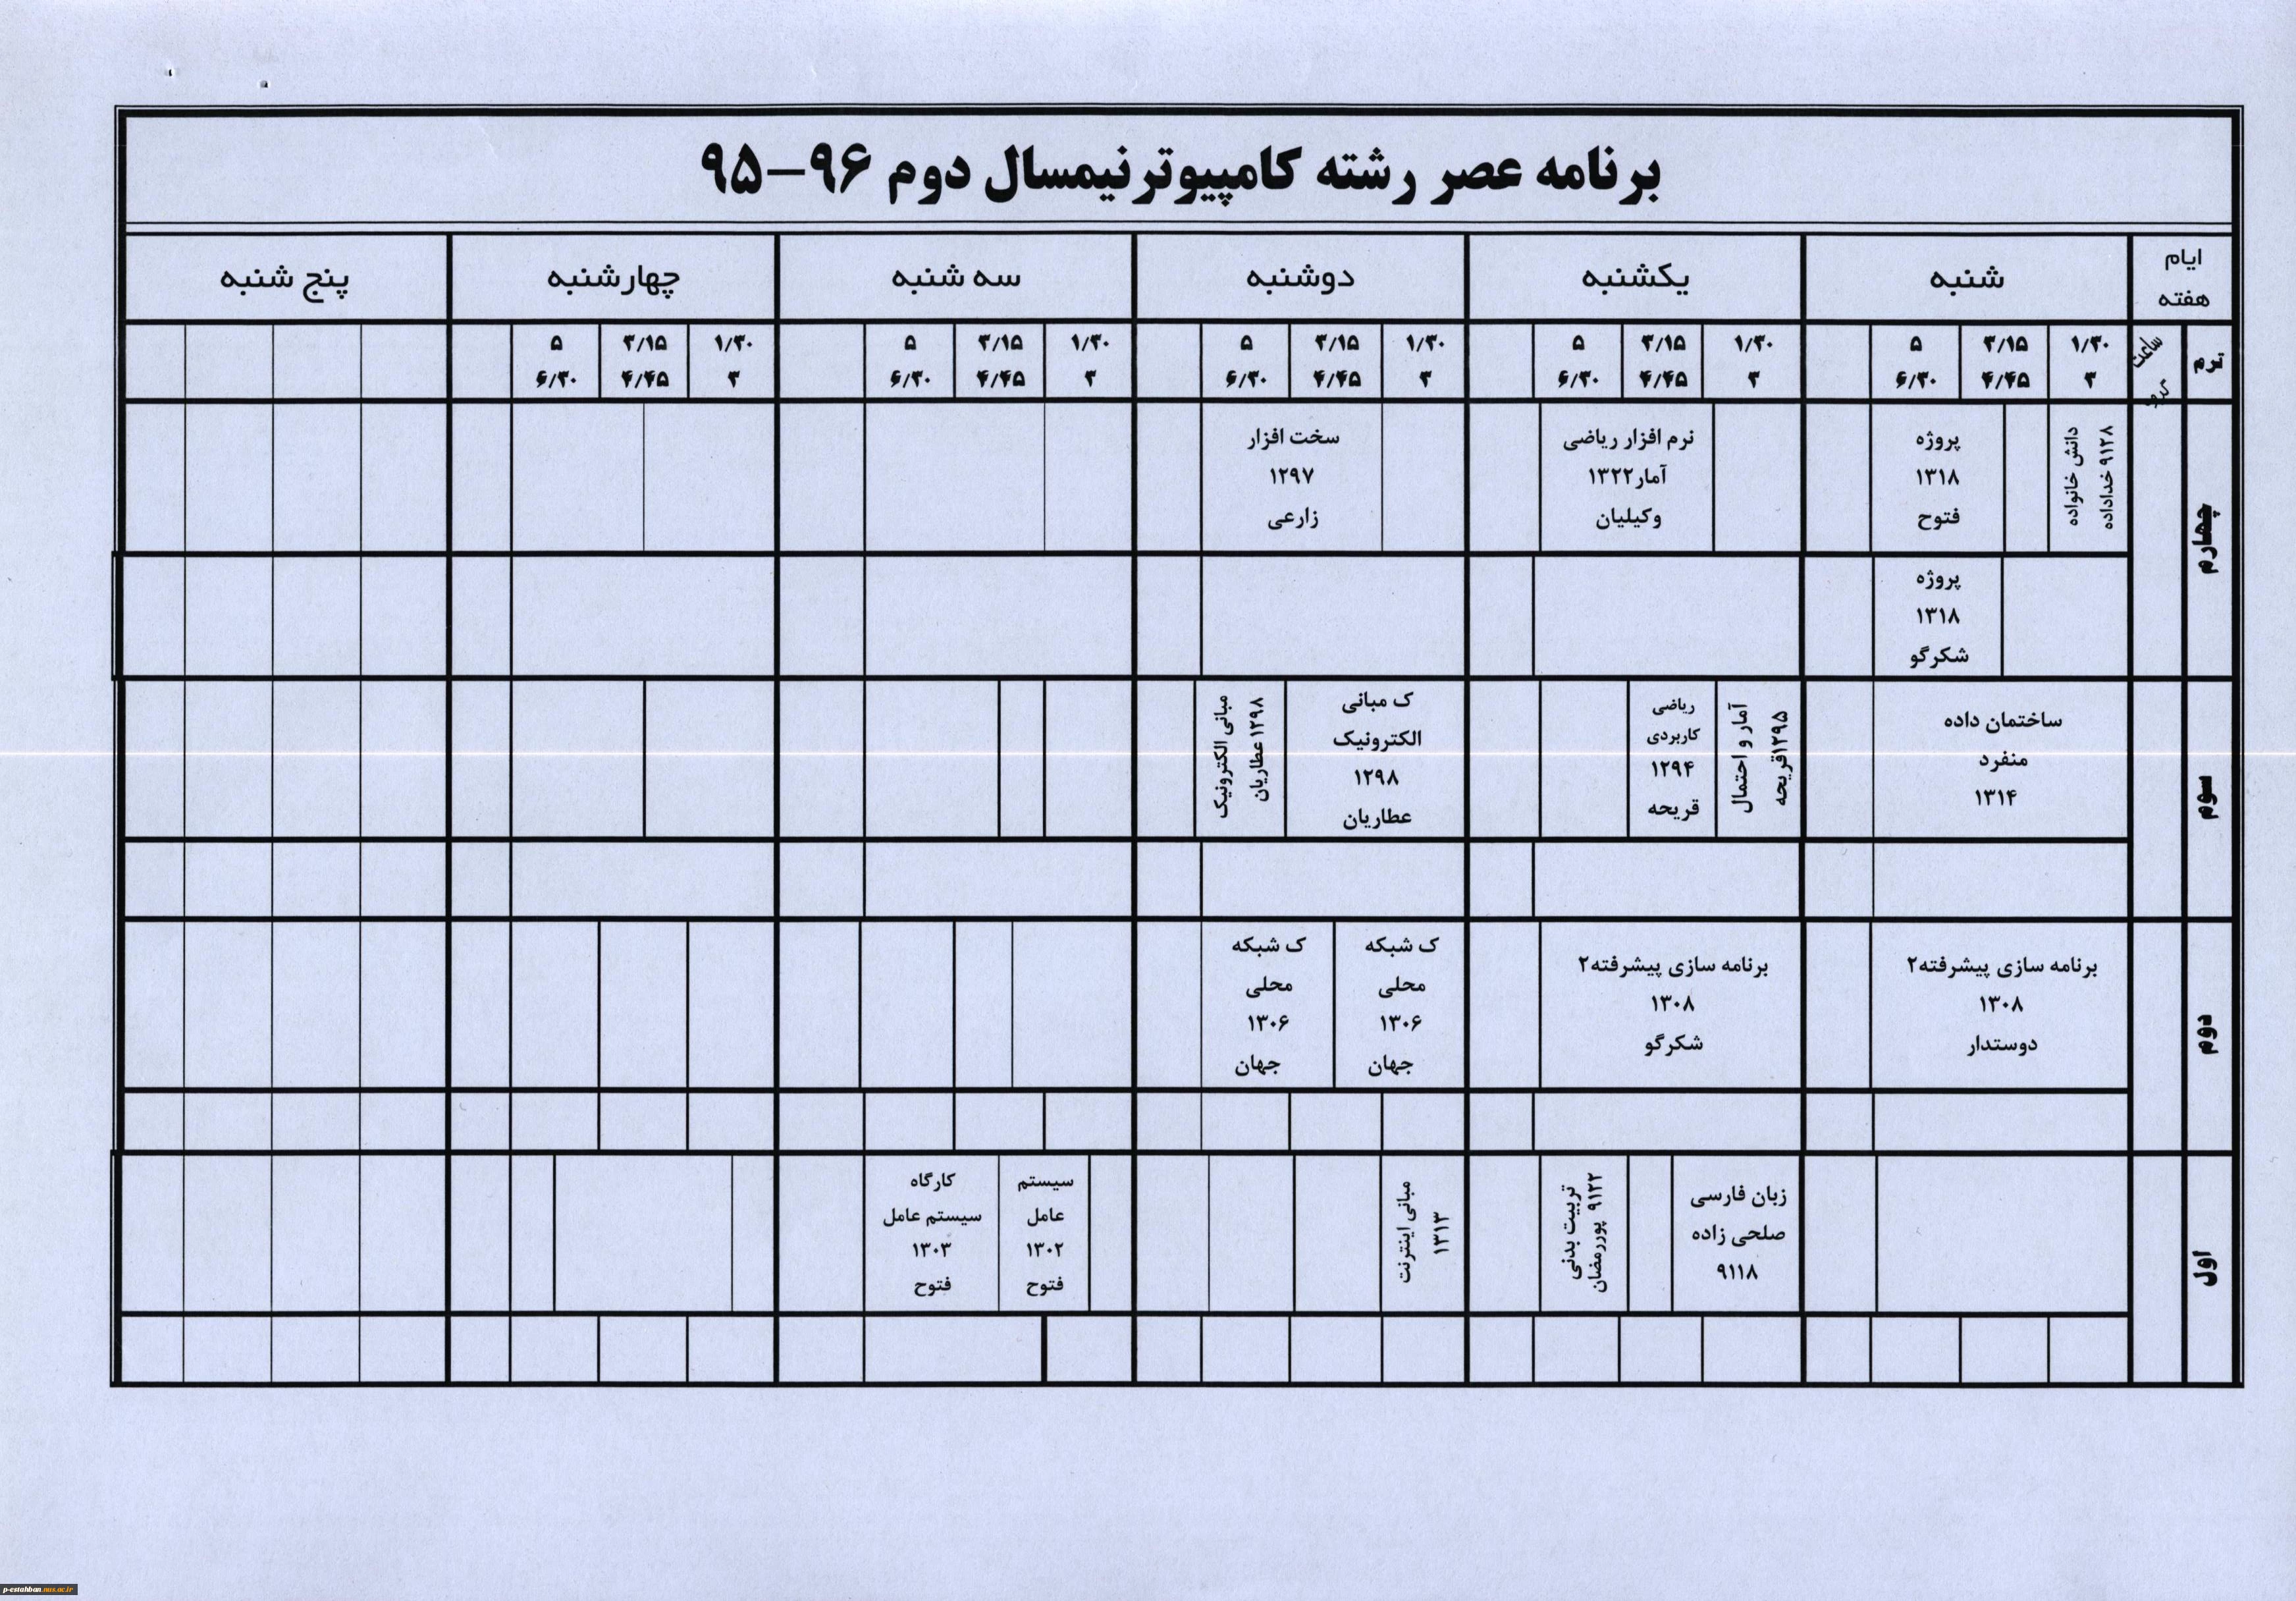 برنامه عصر رشته کامپیوترنیمسال دوم ۹۶-۹۵
ایام
هفته
شنبه
یکشنبه
دوشنبه
سه شنبه
چهارشنبه
پنج شنبه
ترم
ساعت
گروه
۱/۳۰
۳
۳/۱۵
۴/۴۵
۵
۶/۳۰
۱/۳۰
۳
۳/۱۵
۴/۴۵
۵
۶/۳۰
۱/۳۰
۳
۳/۱۵
۴/۴۵
۵
۶/۳۰
۱/۳۰
۳
۳/۱۵
۴/۴۵
۵
۶/۳۰
۱/۳۰
۳
۳/۱۵
۴/۴۵
۵
۶/۳۰
چهارم
دانش خانواده
۹۱۲۸ خداداده
پروژه
۱۳۱۸
فتوح
نرم افزار ریاضی
آمار۱۳۲۲
وکیلیان
سخت افزار
۱۲۹۷
زارعی
پروژه
۱۳۱۸
شکرگو
سوم
ساختمان داده
منفرد
۱۳۱۴
آمار و احتمال
۱۲۹۵قریحه
ریاضی
کاربردی
۱۲۹۴
قریحه
ک مبانی
الکترونیک
۱۲۹۸
عطاریان
مبانی الکترونیک
۱۲۹۸ عطاریان
دوم
برنامه سازی پیشرفته۲
۱۳۰۸
دوستدار
برنامه سازی پیشرفته۲
۱۳۰۸
شکرگو
ک شبکه
محلی
۱۳۰۶
جهان
ک شبکه
محلی
۱۳۰۶
جهان
اول
زبان فارسی
صلحی زاده
۹۱۱۸
تربیت بدنی
۹۱۲۲ پوررمضان
مبانی اینترنت
۱۳۱۳
سیستم
عامل
۱۳۰۲
فتوح
کارگاه
سیستم عامل
۱۳۰۳
فتوح
p-estahban.nus.ac.ir